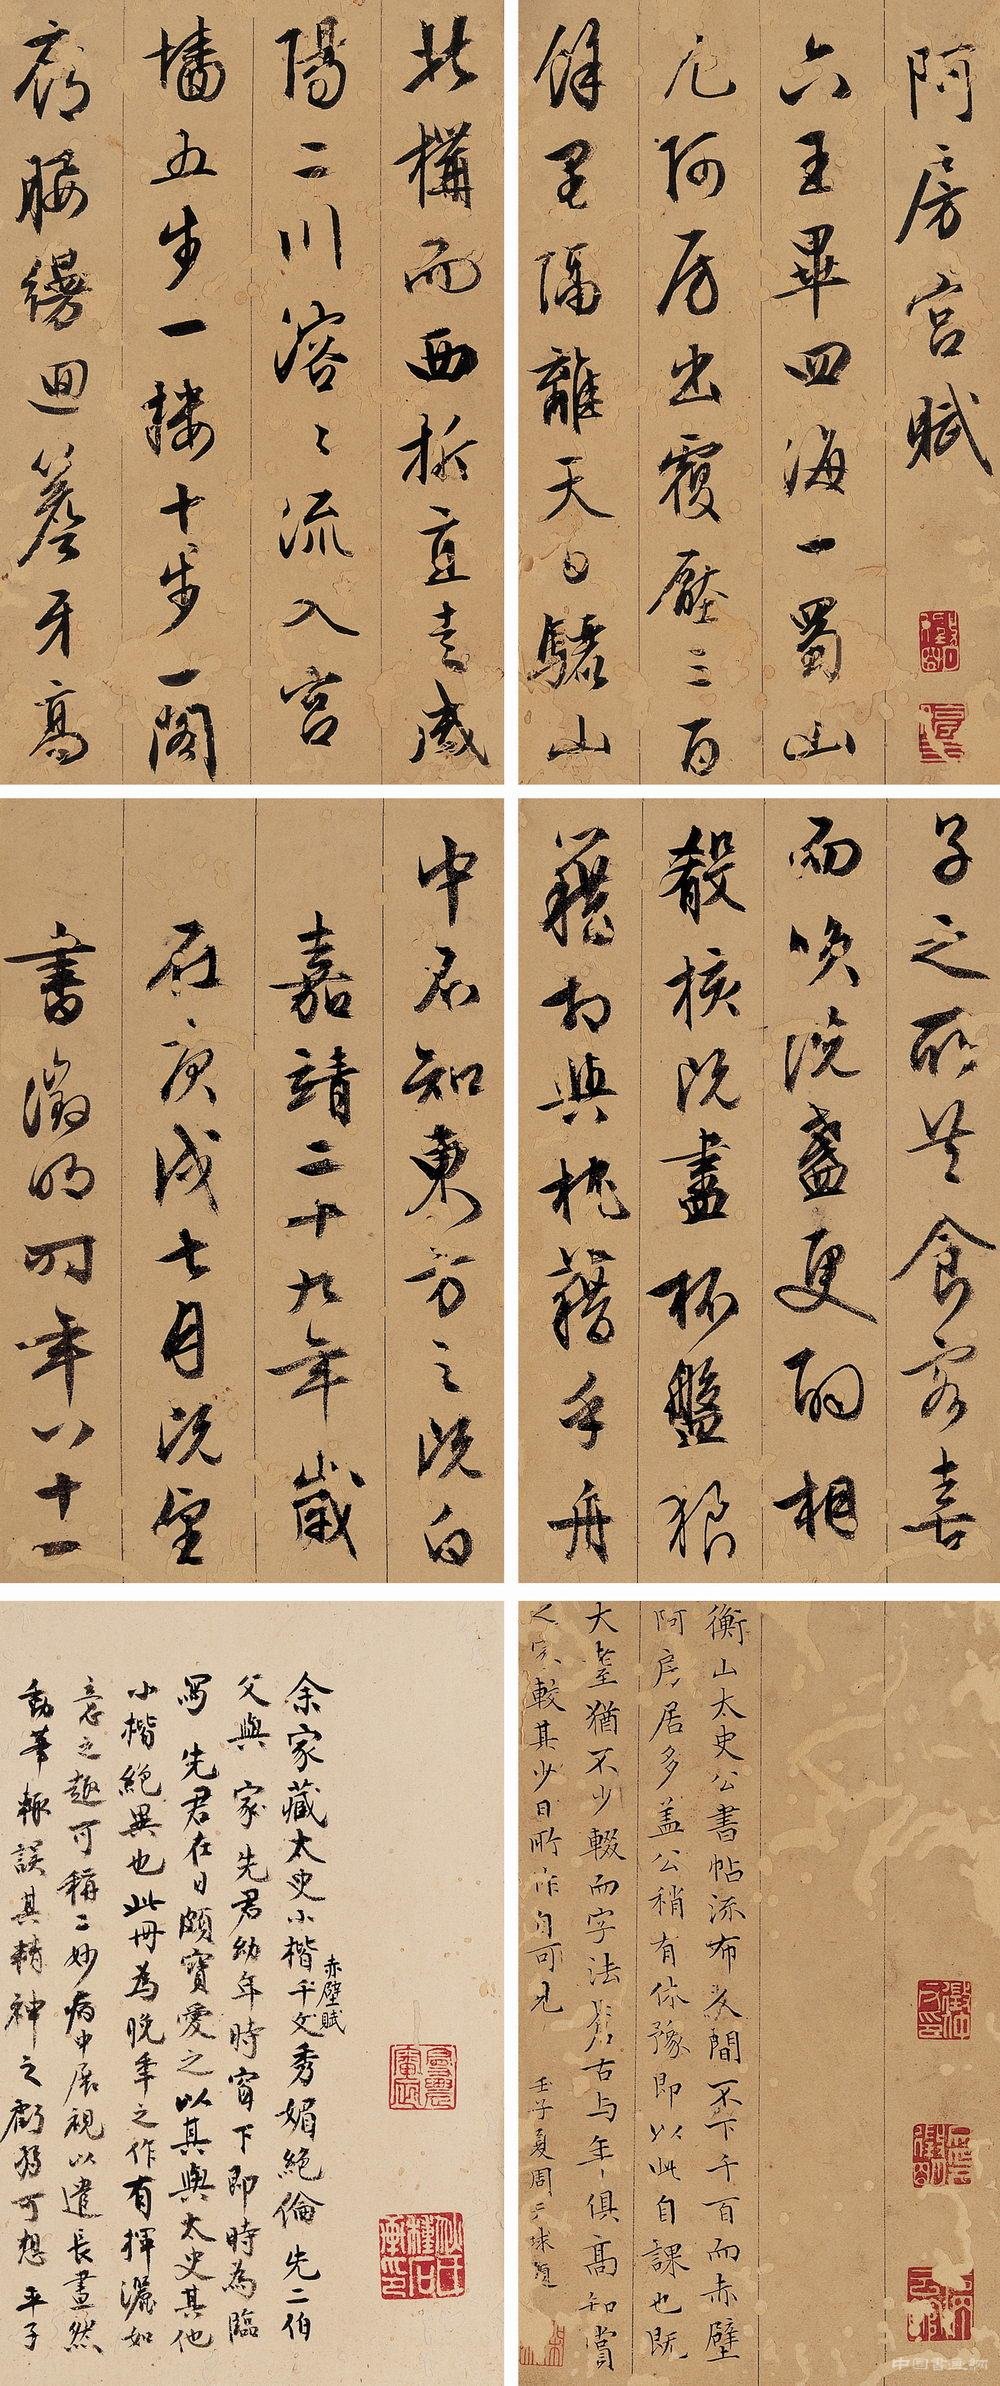 阿房宮賦
六王畢四海一蜀山
兀阿房出覆壓三百
餘里隔離天日驪山
北構而西折直走咸
陽二川溶〻流入宮
墻五步一樓十步一閣
廊腰縵迴簷牙高
子之所共食客喜
而笑洗盞更酌相
殽核既盡杯盤狼
藉相與枕藉乎舟
中不知東方之既白
嘉靖二十九年歲
在庚戌七月既望
書徵明時年八十一
衡山太史公書帖流布人間不下千百而赤壁
阿房居多蓋公稍有休豫即以此自課也既
大耋猶不少輟而字法蒼古与年俱高知賞
之家較其少日所作自可見
壬子夏周天球題
余家藏太史小楷千文秀媚絕倫先二伯
赤壁賦
父與家先君幼年時窗下即時為臨
寫先君在日頗寶愛之以其與太史其他
小楷絕異也此冊為晚年之作有揮灑如
意之趣可稱二妙病中展視以遣長晝然
動筆輒誤其精神之衰弱可想平子
中国書画網